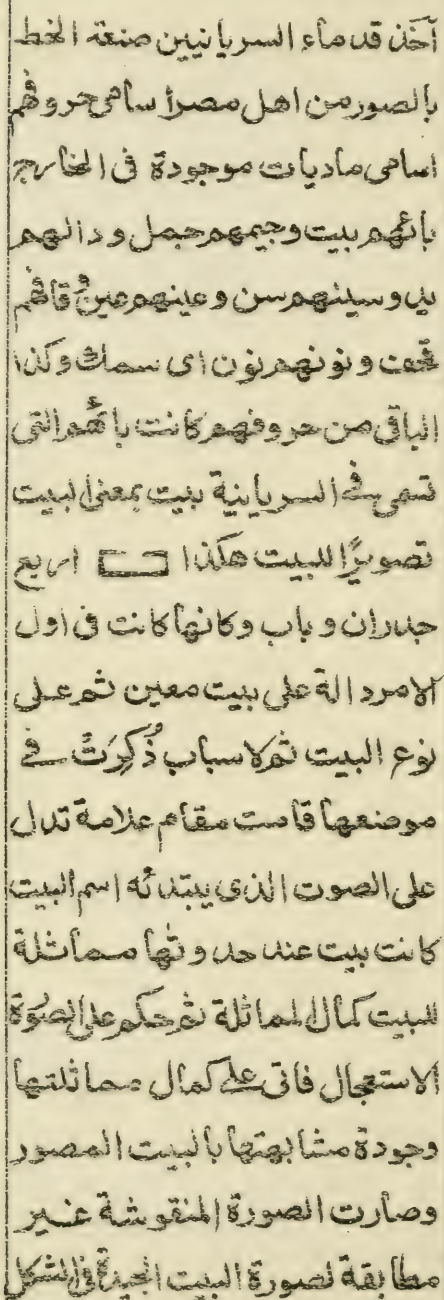 آخذ قدماء السريانيين صنعة الخط
بالصور من اهل مصر اسامي حروفهم
اسامي ماديات موجودة في الخارج
بائهم بيت وجيمهم جمل ودالهم
يد وسينهم سن وعينهم عين وقافهم
قحف ونونهم نون اى سمك وكذا
الباقي من حروفهم كانت بائهم التي
تسمى في السريانية بيت بمعنى البيت
تصويرًا للبيت هكذا اربع
جدران وباب وكانها كانت في اول
الامر دالة على بيت معين ثم على
نوع البيت ثم لاسباب ذُكِرَتْ في
موضعها قامت مقام علامة تدل
على الصوت الذى يبتدئه اسم البيت
كانت بيت عند حدوثها مماثلة
للبيت كمال المماثلة ثم حكم على الصوة
الاستعجال فاتى على كمال مماثلتها
وجودة مشابهتها بالبيت المصور
وصارت الصورة المنقوشة غير
مطابقة لصورة البيت الجيدة في الشكل